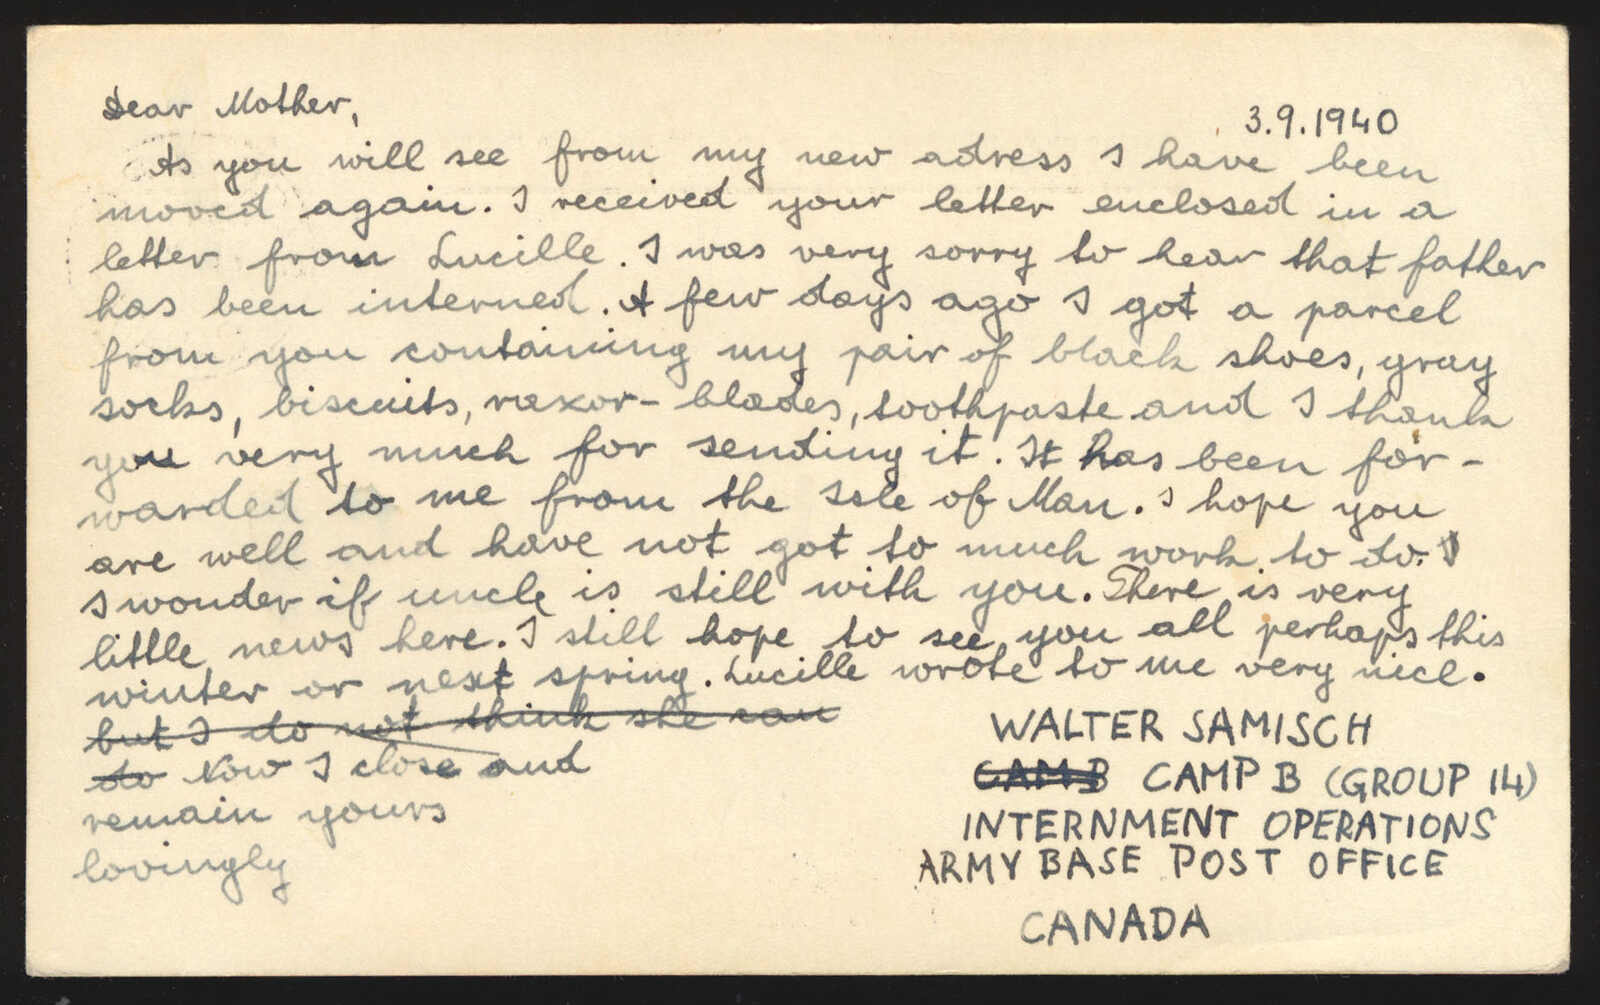 Dear Mother,
3.9.1940
As you will see from my new adress I have been
moved again. I received your letter enclosed in a
letter from Lucille. I was very sorry to hear that father
has been interned. A few days ago I got a parcel
from you containing my pair of black shoes, gray
socks, biscuits, razor-blades, toothpaste and I thank
you very much for sending it. It has been for-
warded to me from the Isle of Man. I hope you
are well and have not got to much work to do. I
I wonder if uncle is still with you. There is very
little news here. I still hope to see you all perhaps this
winter or next spring. Lucille wrote to me very nice.
but I do not think she can
do Now I close and
remain yours
lovingly
WALTER SAMISCH
CAMB CAMP B (GROUP 14)
INTERNMENT OPERATIONS
ARMY BASE POST OFFICE
CANADA